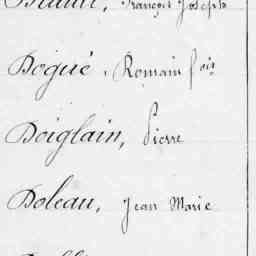 François Joseph
Dogué, Romain fois
Doiglain, Pierre
Doleau, Jean Marie